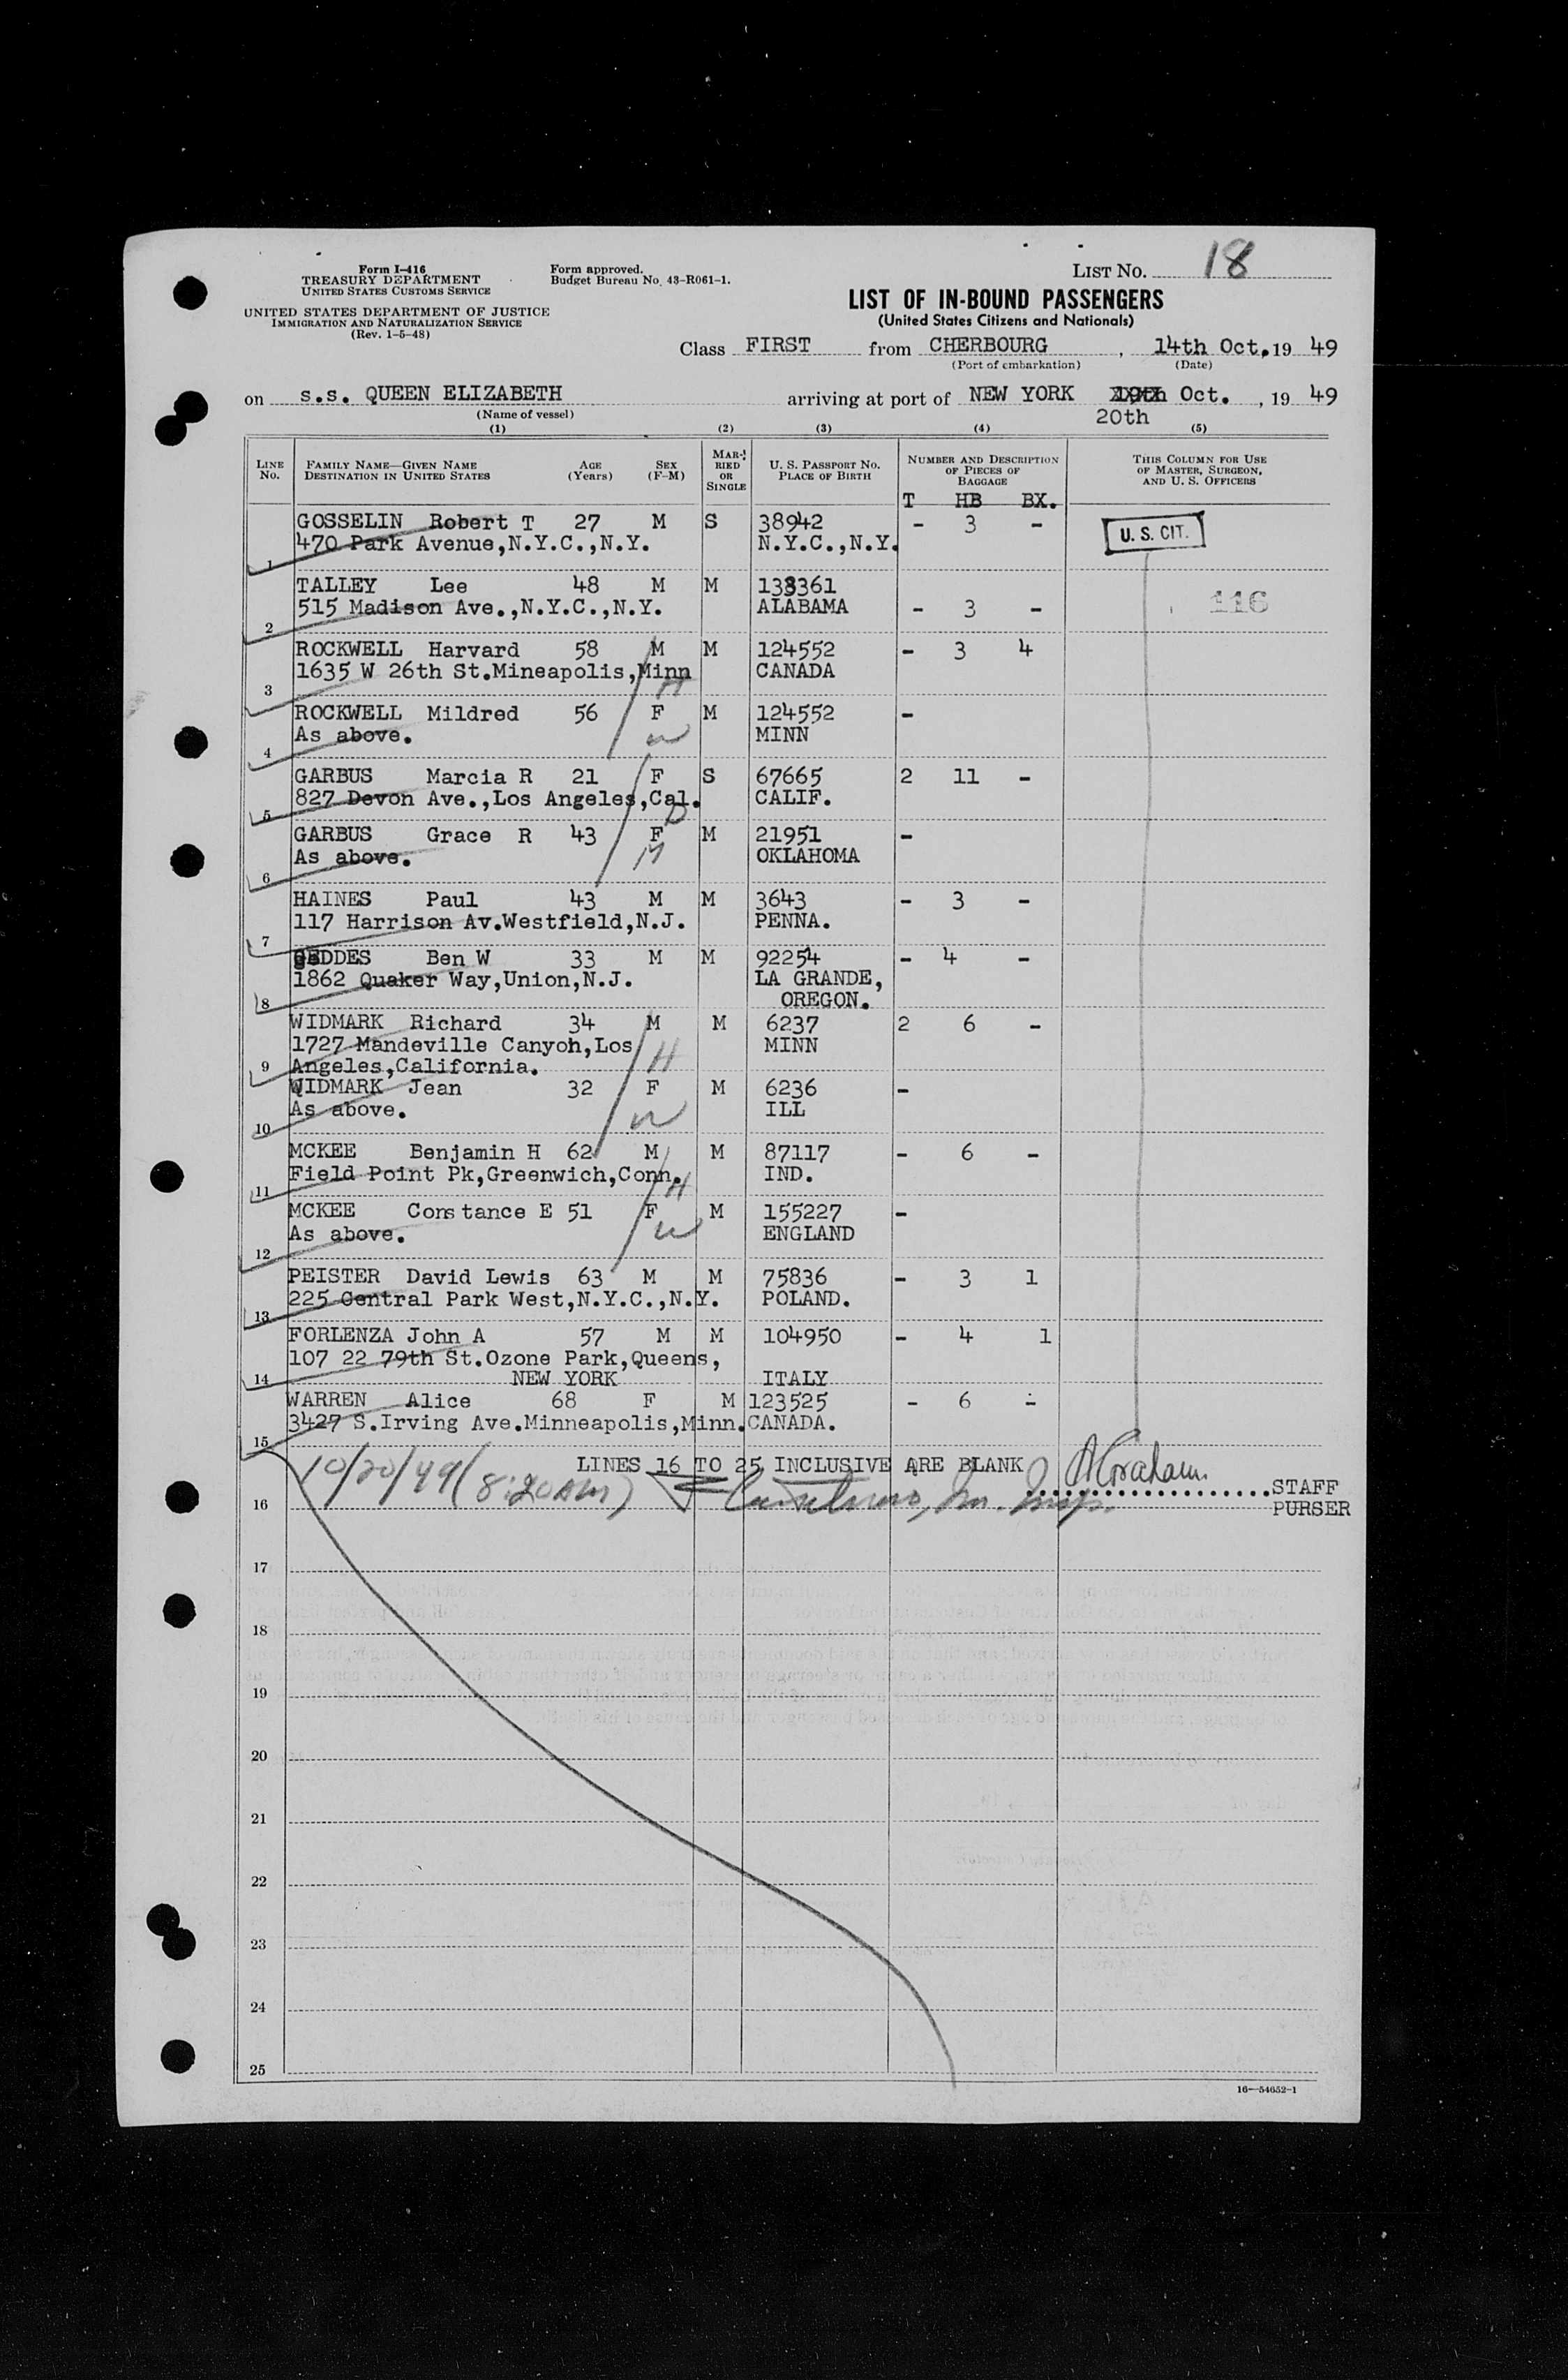 Form I-416
TREASURY DEPARTMENT
UNITED STATES CUSTOMS SERVICE
UNITED STATES DEPARTMENT OF JUSTICE
IMMIGRATION AND NATURALIZATION SERVICE
(Rev. 1-5-48)
Form approved.
Budget Bureau No. 43-R061-1.
LIST NO. 18
LIST OF IN-BOUND PASSENGERS
(United States Citizens and Nationals)
Class FIRST from CHERBOURG, 14th Oct. 19 49
(Port of embarkation) (Date)
on s.s. QUEEN ELIZABETH arriving at port of NEW YORK 19th Oct., 19 49
(Name of vessel) 20th
(1) (2) (3) (4) (5)
LINE NO. FAMILY NAME—GIVEN NAME DESTINATION IN UNITED STATES AGE (Years) SEX (F-M) MARRIED OR SINGLE U. S. PASSPORT NO. PLACE OF BIRTH NUMBER AND DESCRIPTION OF PIECES OF BAGGAGE THIS COLUMN FOR USE OF MASTER, SURGEON, AND U. S. OFFICERS
T HB BX.
GOSSELIN Robert T 27 M S 38942 - 3 - U. S. CIT.
1 470 Park Avenue,N.Y.C.,N.Y. N.Y.C.,N.Y.
TALLEY Lee 48 M M 133361
2 515 Madison Ave.,N.Y.C.,N.Y. ALABAMA - 3 - 116
ROCKWELL Harvard 58 M M 124552 - 3 4
3 1635 W 26th St.Mineapolis,Minn CANADA
H
ROCKWELL Mildred 56 F M 124552 -
4 As above. MINN
W
GARBUS Marcia R 21 F S 67665 2 11 -
5 827 Devon Ave.,Los Angeles,Cal. CALIF.
D
GARBUS Grace R 43 F M 21951 -
6 As above. OKLAHOMA
M
HAINES Paul 43 M M 3643 - 3 -
7 117 Harrison Av.Westfield,N.J. PENNA.
GEDDES Ben W 33 M M 92254 - 4 -
1862 Quaker Way,Union,N.J. LA GRANDE,
8 OREGON.
WIDMARK Richard 34 M M 6237 2 6 -
1727 Mandeville Canyon,Los MINN
H
9 Angeles,California.
WIDMARK Jean 32 F M 6236 -
10 As above. ILL
W
MCKEE Benjamin H 62 M M 87117 - 6 -
11 Field Point Pk,Greenwich,Conn. IND.
H
MCKEE Constance E 51 F M 155227 -
12 As above. ENGLAND
W
PEISTER David Lewis 63 M M 75836 - 3 1
13 225 Central Park West,N.Y.C.,N.Y. POLAND.
FORLENZA John A 57 M M 104950 - 4 1
107 22 79th St.Ozone Park,Queens,
14 NEW YORK ITALY
WARREN Alice 68 F M 123525 - 6 -
15 3427 S.Irving Ave.Minneapolis,Minn. CANADA.
LINES 16 TO 25 INCLUSIVE ARE BLANK
10/20/49 (8:20AM) STAFF
16 PURSER
17
18
19
20
21
22
23
24
25
16—54652-1